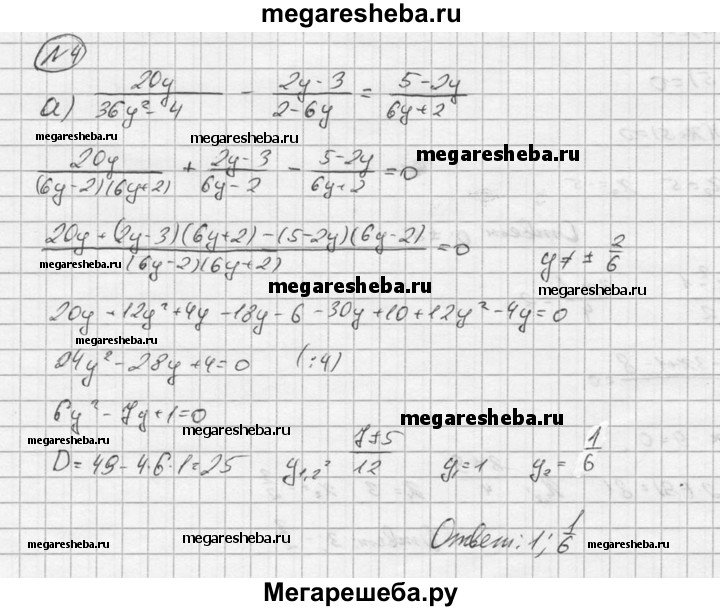 megaresheba.ru
№4
а) 20y/(36y² - 4) - (2y-3)/(2-6y) = (5-2y)/(6y+2)
megaresheba.ru megaresheba.ru
megaresheba.ru
20y/((6y-2)(6y+2)) + (2y-3)/(6y-2) - (5-2y)/(6y+2) = 0
megaresheba.ru megaresheba.ru
(20y+(2y-3)(6y+2)-(5-2y)(6y-2))/((6y-2)(6y+2)) = 0 y≠ ± 2/6
megaresheba.ru megaresheba.ru megaresheba.ru
20y+12y²+4y-18y-6-30y+10+12y²-4y=0
24y²-28y+4=0 (:4)
megaresheba.ru megaresheba.ru
6y²-7y+1=0
megaresheba.ru megaresheba.ru
megaresheba.ru
D=49-4·6·1=25 y₁,₂= (7±5)/12 y₁=1 y₂= 1/6
megaresheba.ru megaresheba.ru
Ответ: 1; 1/6
megaresheba.ru megaresheba.ru megaresheba.ru
Мегарешеба.ру